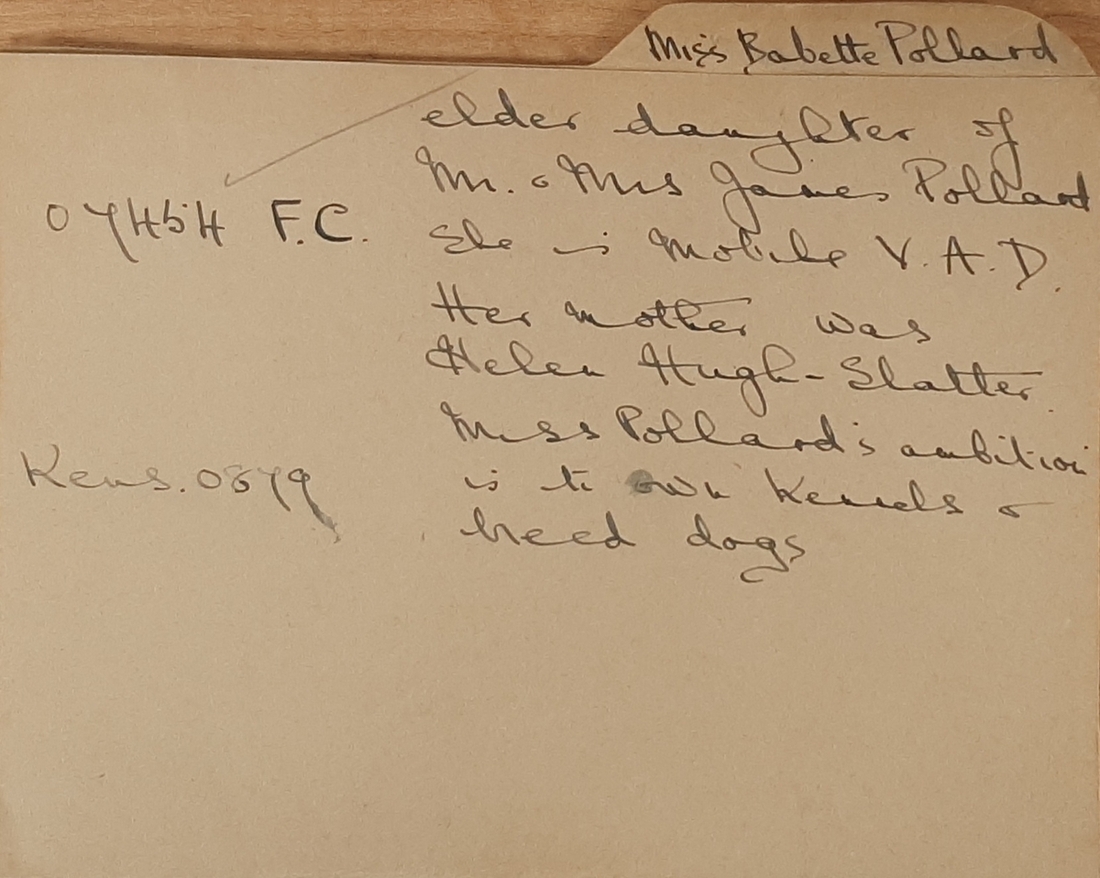 Miss Babette Pollard
elder daughter of
Mr. & Mrs James Pollard
07454 F.C.
She is Mobile V.A.D.
Her mother was
Helen Hugh-Slatter.
Miss Pollard's ambition
Kens. 0879
is to own Kennels &
breed dogs